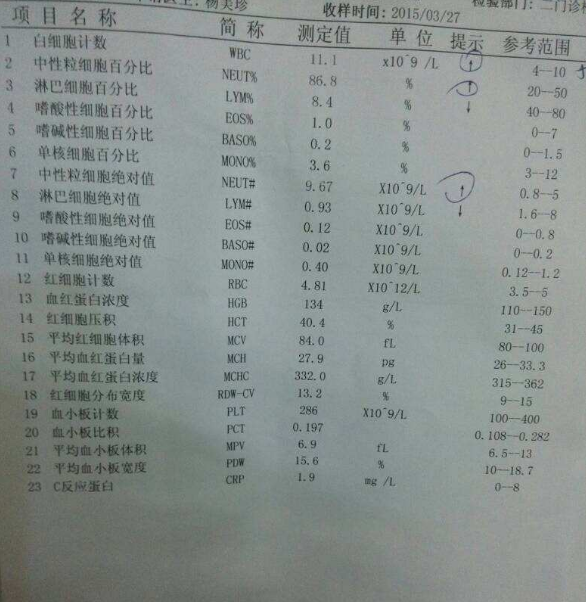 杨美珍 收样时间:2015/03/27 检验部门:二门诊检
项目名称 简称 测定值 单位 提示 参考范围
1 白细胞计数 WBC 11.1 x10^9 /L ↑ 4--10
2 中性粒细胞百分比 NEUT% 86.8 % ↑ 20--50
3 淋巴细胞百分比 LYM% 8.4 % ↓ 40--80
4 嗜酸性细胞百分比 EOS% 1.0 % 0--7
5 嗜碱性细胞百分比 BASO% 0.2 % 0--1.5
6 单核细胞百分比 MONO% 3.6 % 3--12
7 中性粒细胞绝对值 NEUT# 9.67 X10^9/L ↑ 0.8--5
8 淋巴细胞绝对值 LYM# 0.93 X10^9/L ↓ 1.6--8
9 嗜酸性细胞绝对值 EOS# 0.12 X10^9/L 0--0.8
10 嗜碱性细胞绝对值 BASO# 0.02 X10^9/L 0--0.2
11 单核细胞绝对值 MONO# 0.40 X10^9/L 0.12--1.2
12 红细胞计数 RBC 4.81 X10^12/L 3.5--5
13 血红蛋白浓度 HGB 134 g/L 110--150
14 红细胞压积 HCT 40.4 % 31--45
15 平均红细胞体积 MCV 84.0 fL 80--100
16 平均血红蛋白量 MCH 27.9 pg 26--33.3
17 平均血红蛋白浓度 MCHC 332.0 g/L 315--362
18 红细胞分布宽度 RDW-CV 13.2 % 9--15
19 血小板计数 PLT 286 X10^9/L 100--400
20 血小板比积 PCT 0.197 0.108--0.282
21 平均血小板体积 MPV 6.9 fL 6.5--13
22 平均血小板宽度 PDW 15.6 % 10--18.7
23 C反应蛋白 CRP 1.9 mg /L 0--8